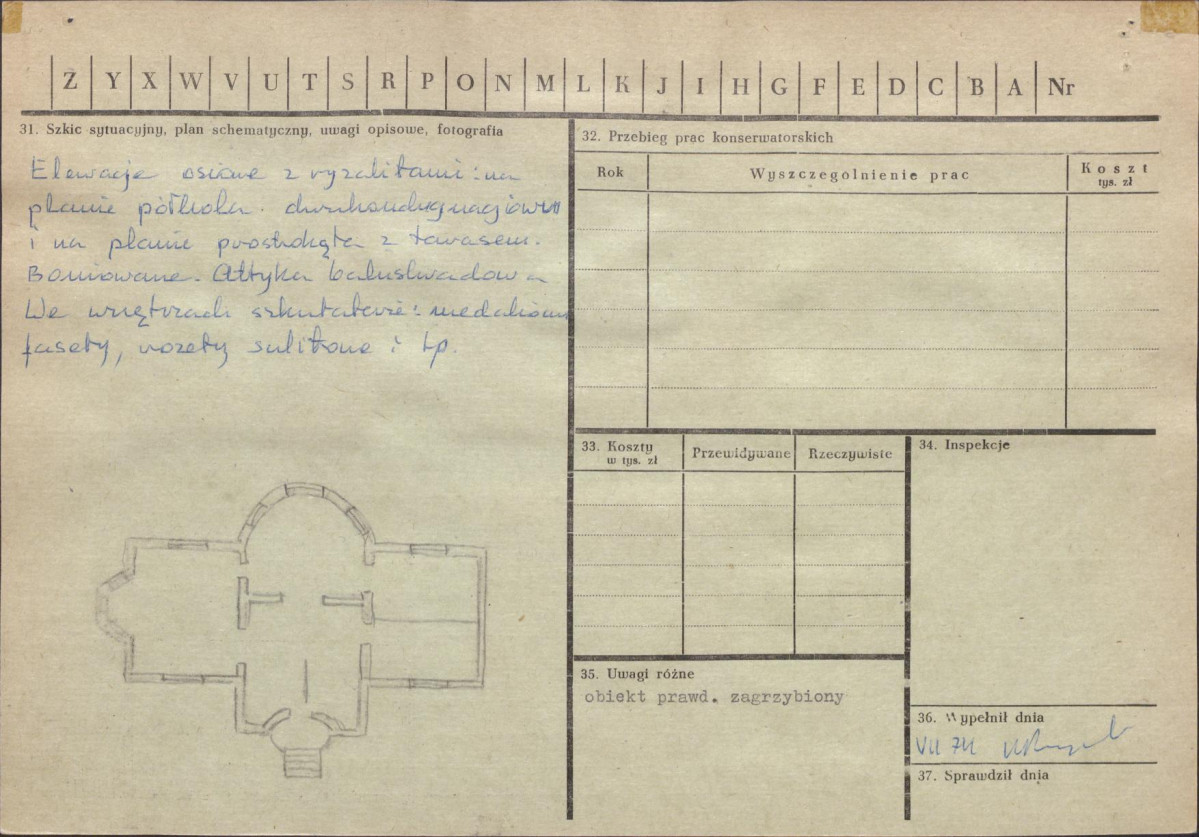 Z Y X W V U T S R P O N M L K J I H G F E D C B A Nr
31. Szkic sytuacyjny, plan schematyczny, uwagi opisowe, fotografia
Elewacje osiowe z ryzalitami: na
planie półkola dwukondygnacjowym
i na planie prostokąta z tarasem.
Boniowane. Attyka balustradowa
We wnętrzach sztukaterie: medaliony
fasety, rozety sufitowe i tp.
32. Przebieg prac konserwatorskich
Rok Wyszczególnienie prac Koszt
tys. zł
33. Koszty
w tys. zł
Przewidywane Rzeczywiste
34. Inspekcje
35. Uwagi różne
obiekt prawd. zagrzybiony
36. Wypełnił dnia
VII 74
37. Sprawdził dnia